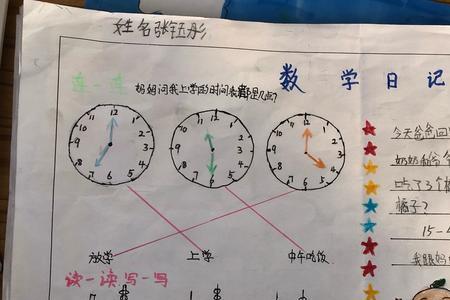 姓名张钰彤
数学日记
连一连 妈妈问我上学的时间表都是几点?
12 1 2 3 4 5 6 7 8 9 10 11
12 1 2 3 4 5 6 7 8 9 10 11
12 1 2 3 4 5 6 7 8 9 10 11
放学 上学 中午吃饭
读一读写一写
今天爸爸回
奶奶和爷爷
吃了3个
橘子?
15-
我跟妈